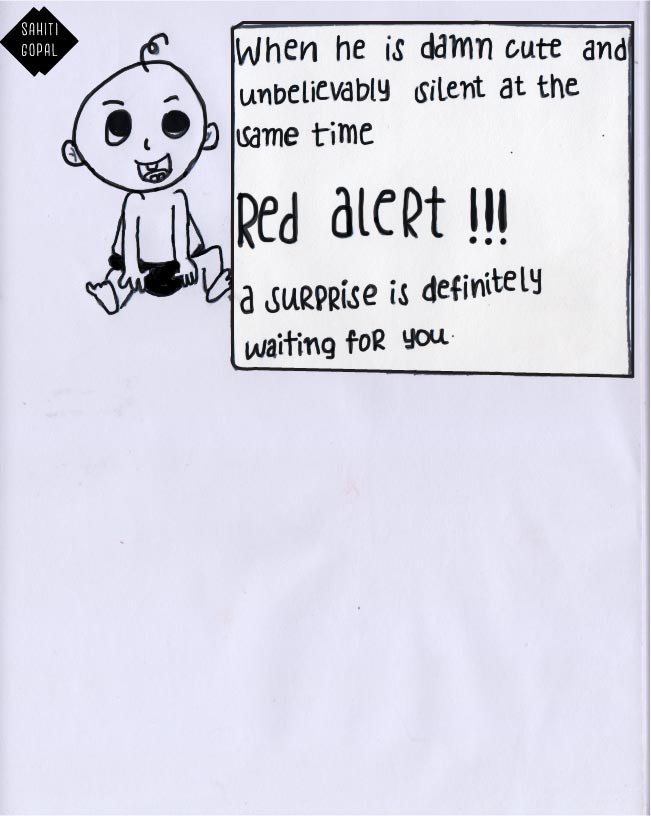 SAHITI
GOPAL
When he is damn cute and
unbelievably silent at the
same time
Red alert !!!
a surprise is definitely
waiting for you.